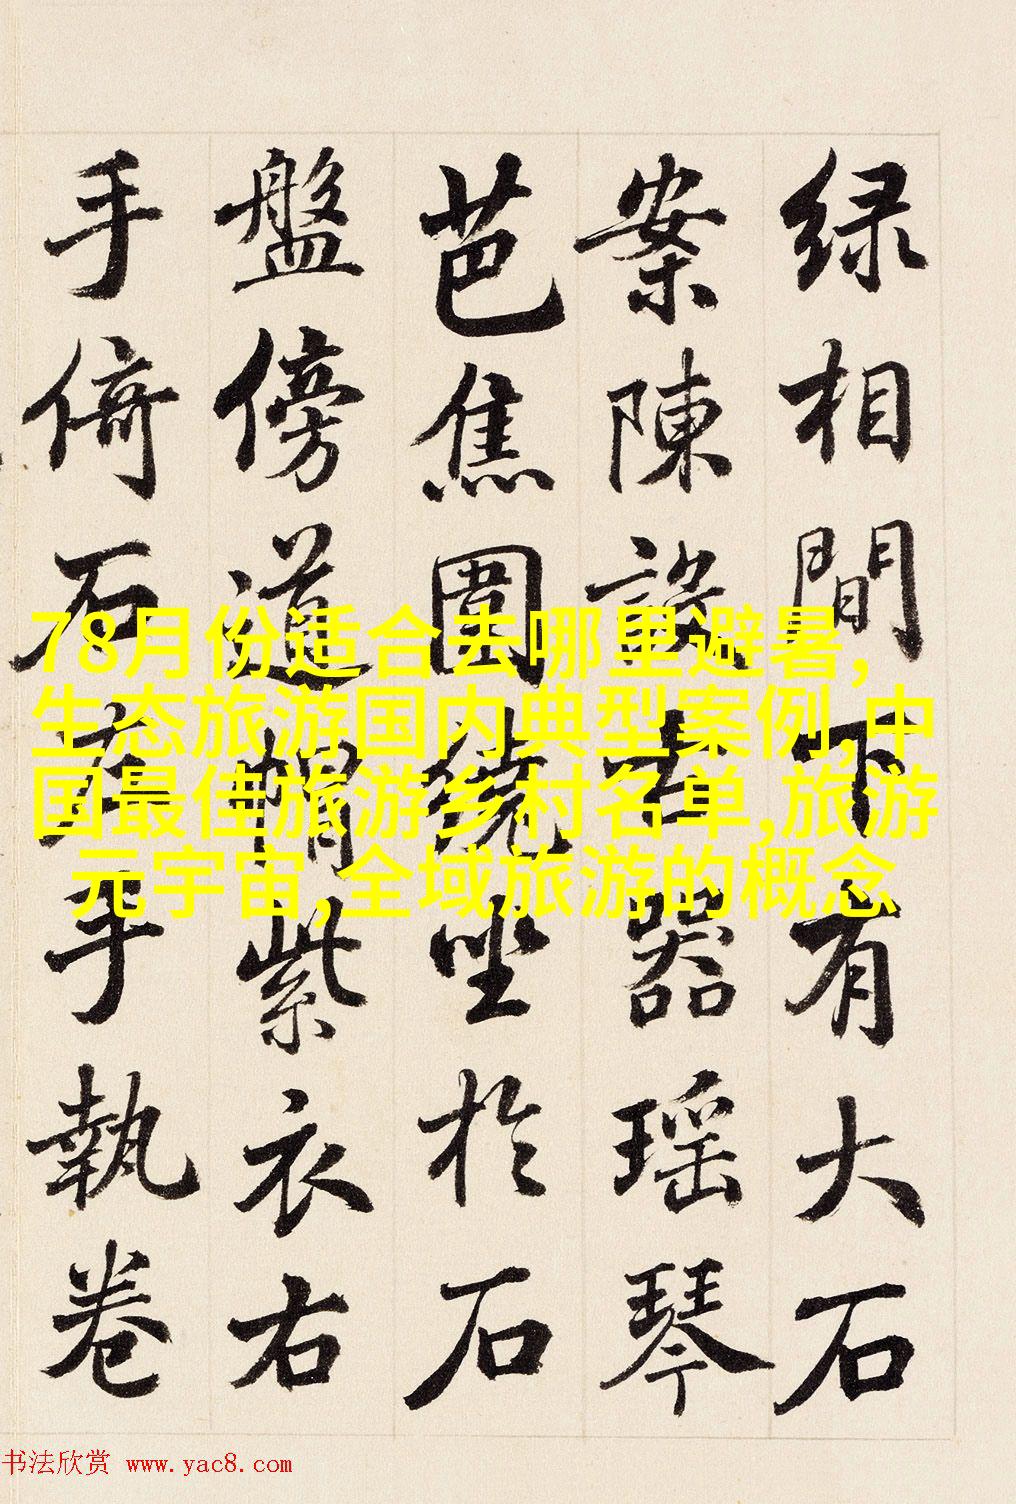 绿相間下有大石
案陳設古器瑶琴
芭焦圍繞坐於石
盤傍道帽紫衣右
手倚石左手執卷
78月份适合去哪里避暑,
生态旅游国内典型案例,中
国最佳旅游乡村名单,旅游
元宇宙,全域旅游的概念
书法欣赏 www.yac8.com